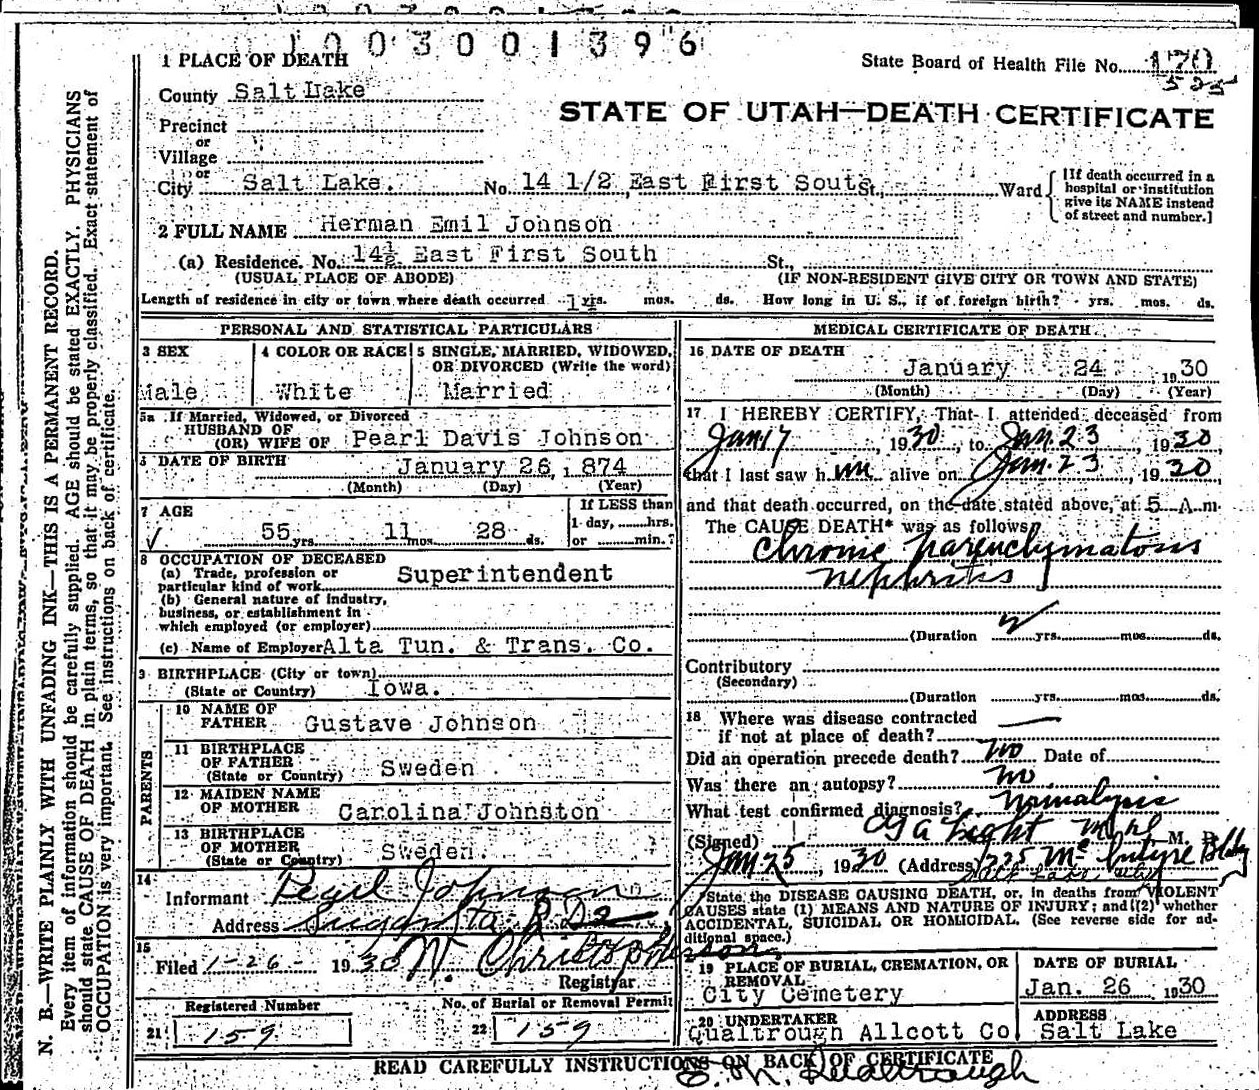 1003001396
1 PLACE OF DEATH
State Board of Health File No. 170
525
County Salt Lake
STATE OF UTAH—DEATH CERTIFICATE
Precinct
or
Village
or
City Salt Lake. No. 14 1/2 East First South St. Ward
[If death occurred in a hospital or institution give its NAME instead of street and number.]
2 FULL NAME Herman Emil Johnson
(a) Residence. No. 14½ East First South St.,
(USUAL PLACE OF ABODE) (IF NON-RESIDENT GIVE CITY OR TOWN AND STATE)
Length of residence in city or town where death occurred 14 yrs. mos. ds. How long in U. S., if of foreign birth? yrs. mos. ds.
PERSONAL AND STATISTICAL PARTICULARS
3 SEX
Male
4 COLOR OR RACE
White
5 SINGLE, MARRIED, WIDOWED, OR DIVORCED (Write the word)
Married
5a If Married, Widowed, or Divorced
HUSBAND OF
(OR) WIFE OF Pearl Davis Johnson
6 DATE OF BIRTH January 26, 1874
(Month) (Day) (Year)
7 AGE
55 yrs. 11 mos. 28 ds.
If LESS than
1 day, ........hrs.
or ........min.?
8 OCCUPATION OF DECEASED
(a) Trade, profession or
particular kind of work Superintendent
(b) General nature of industry,
business, or establishment in
which employed (or employer)
(c) Name of Employer Alta Tun. & Trans. Co.
9 BIRTHPLACE (City or town)
(State or Country) Iowa.
PARENTS
10 NAME OF
FATHER Gustave Johnson
11 BIRTHPLACE
OF FATHER
(State or Country) Sweden
12 MAIDEN NAME
OF MOTHER Carolina Johnston
13 BIRTHPLACE
OF MOTHER
(State or Country) Sweden.
14
Informant Pearl Johnson
Address
15
Filed 1-26- 1930 W. Christopherson
Registrar
Registered Number
21 159
No. of Burial or Removal Permit
22 159
MEDICAL CERTIFICATE OF DEATH
16 DATE OF DEATH
January 24, 1930
(Month) (Day) (Year)
17 I HEREBY CERTIFY, That I attended deceased from
Jan 17, 1930, to Jan. 23 1930
that I last saw him alive on Jan. 23, 1930
and that death occurred, on the date stated above, at 5 A.m.
The CAUSE DEATH* was as follows
Chronic parenchymatous
nephritis
(Duration yrs. mos. ds.
Contributory
(Secondary)
(Duration yrs. mos. ds.
18 Where was disease contracted
if not at place of death?
Did an operation precede death? no Date of
Was there an autopsy? no
What test confirmed diagnosis?
(Signed) M. D.
Jan 25, 1930 (Address) 225 McIntyre Bldg
Salt Lake, Utah
State the DISEASE CAUSING DEATH, or, in deaths from VIOLENT
CAUSES state (1) MEANS AND NATURE OF INJURY; and (2) whether
ACCIDENTAL, SUICIDAL OR HOMICIDAL. (See reverse side for ad-
ditional space.)
19 PLACE OF BURIAL, CREMATION, OR
REMOVAL
City Cemetery
DATE OF BURIAL
Jan. 26 1930
20 UNDERTAKER
Qualtrough Allcott Co
ADDRESS
Salt Lake
READ CAREFULLY INSTRUCTIONS ON BACK OF CERTIFICATE
Qualtrough
N. B.—WRITE PLAINLY WITH UNFADING INK—THIS IS A PERMANENT RECORD.
Every item of information should be carefully supplied. AGE should be stated EXACTLY. PHYSICIANS
should state CAUSE OF DEATH in plain terms, so that it may be properly classified. Exact statement of
OCCUPATION is very important. See instructions on back of certificate.